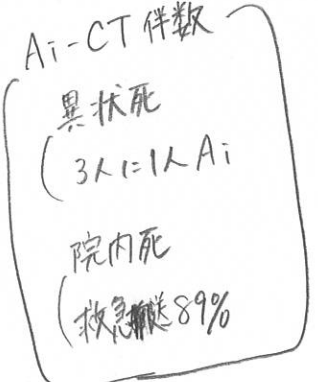 Ai-CT件数
異状死
3人に1人Ai
院内死
救急搬送89%